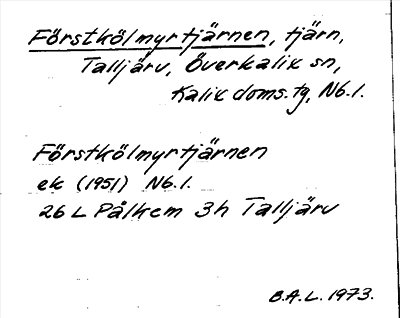 Förstkölmyrtjärnen, tjärn,
Talljärv, Överkalix sn,
Kalix doms. tg, Nb. l.
Förstkölmyrtjärnen
ek (1951) Nb. l.
26 L Pålkem 3h Talljärv
B.A.L. 1973.